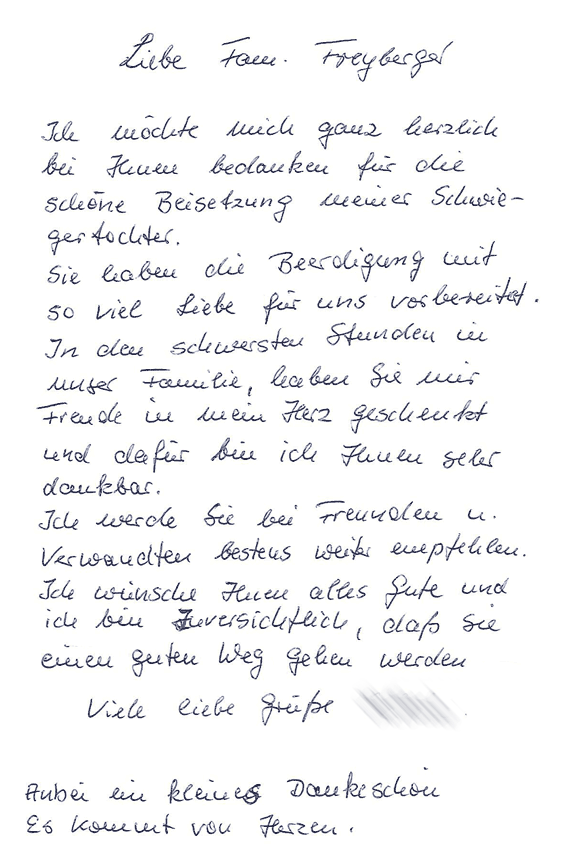 Liebe Fam. Freyberger
Ich möchte mich ganz herzlich
bei Ihnen bedanken für die
schöne Beisetzung meiner Schwie-
gertochter.
Sie haben die Beerdigung mit
so viel Liebe für uns vorbereitet.
In den schwersten Stunden in
unser Familie, haben Sie mir
Freude in mein Herz geschenkt
und dafür bin ich Ihnen sehr
dankbar.
Ich werde Sie bei Freunden u.
Verwandten bestens weiter empfehlen.
Ich wünsche Ihnen alles Gute und
ich bin Zuversichtlich, daß Sie
einen guten Weg gehen werden
Viele liebe Grüße
Anbei ein kleines Dankeschön
Es kommt von Herzen.